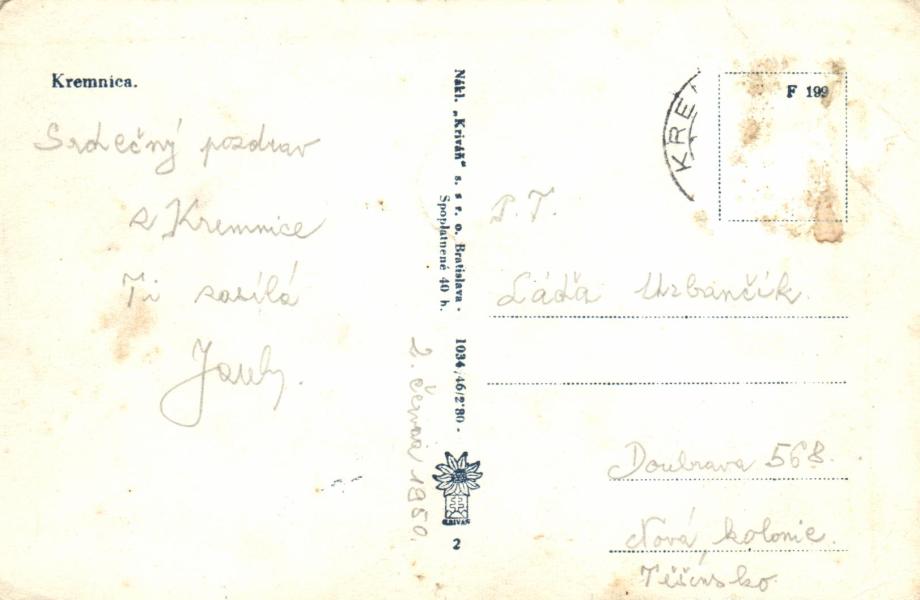 Kremnica.
Srdečný pozdrav
z Kremnice
Ti zasílá
2. června 1950.
Nákl. „Kriváň“ s. s r. o. Bratislava - 1034/46/2'80 -
Spoplatnené 40 h.
KRIVÁŇ
2
KRE
F 199
P. T.
Láďa Urbančík.
Doubrava 568.
Nová kolonie.
Těšínsko.